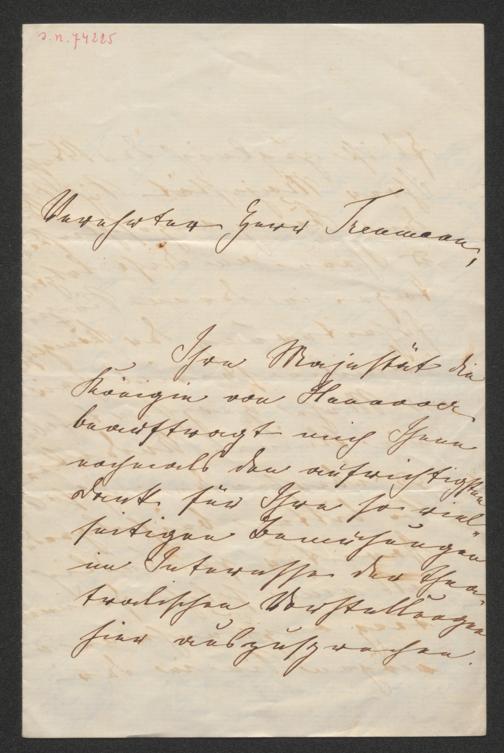 J.N. 74225
Verehrter Herr Treumann,
Ihre Majestät die
Königin von Hannover
beauftragt mich Ihnen
nochmals den aufrichtigsten
Dank für Ihre so viel-
seitigen Bemühungen
im Interesse der thea-
tralischen Vorstellungen
hier auszusprechen.